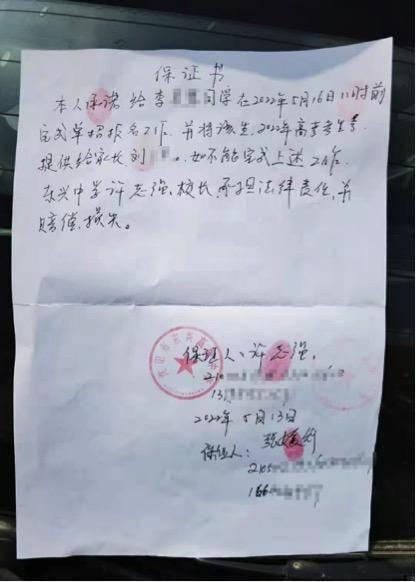 保证书
本人承诺给李 同学在2022年5月16日11时前
完成单招报名工作。并将该生2022年高考考生号
提供给家长刘 。如不能完成上述工作。
东兴中学许志强校长承担法律责任,并
赔偿损失。
保证人:许志强。
210
13
2022年5月13日
保证人:
210
166